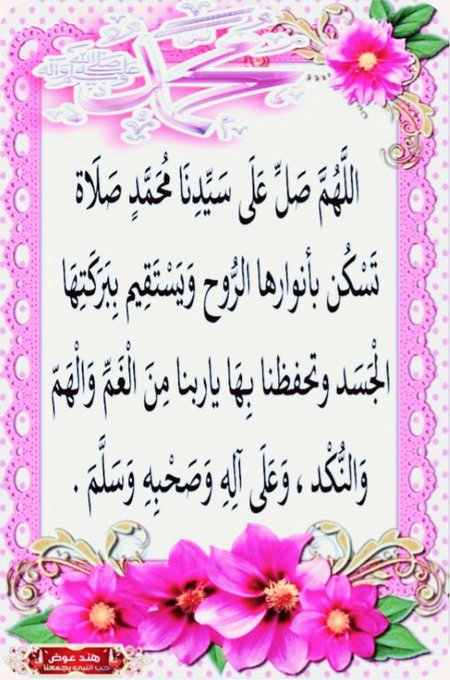 محمد
صلى الله عليه وآله
اللَّهُمَّ صَلِّ عَلَى سَيِّدِنَا مُحَمَّدٍ صَلَاة
تَسْكُن بأنوارها الرُّوح وَيَسْتَقِيم بِبَرَكَتِهَا
الْجَسَد وتحفظنا بِهَا ياربنا مِنَ الْغَمِّ وَالْهَمّ
وَالنُّكْد ، وَعَلَى آلِهِ وَصَحْبِهِ وَسَلَّمَ .
هند عوض
حب النبي يجمعنا